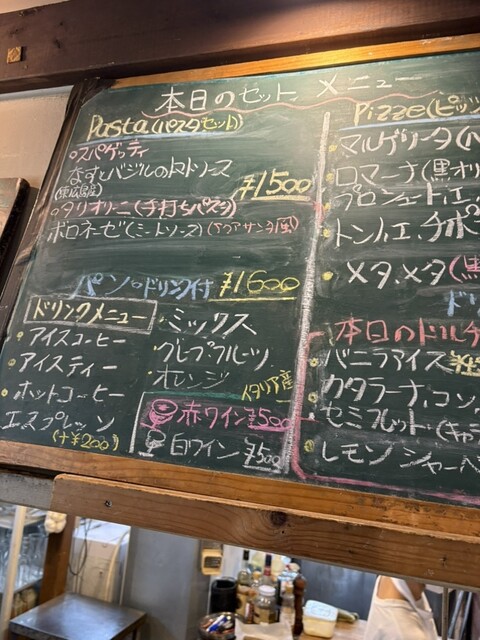 本日のセットメニュー
Pasta(パスタセット)
スパゲッティ
なすとバジルのトマトソース
¥1500
タリオリーニ(手打ちパスタ)
ボロネーゼ(ミートソース)
パン・ドリンク付 ¥1600
ドリンクメニュー
アイスコーヒー
アイスティー
ホットコーヒー
エスプレッソ
(+¥200)
ミックス
グレープフルーツ
オレンジ
イタリア産
赤ワイン ¥500
白ワイン ¥500
Pizze(ピッ
マルゲリータ(
ロマーナ(黒オリ
プロシュート.エ.
トンノ.エ.チポ
メタ.メタ(
ド
本日のドルチ
バニラアイス
カタラーナ.コン
セミフレッド(キャラ
レモンシャーベ